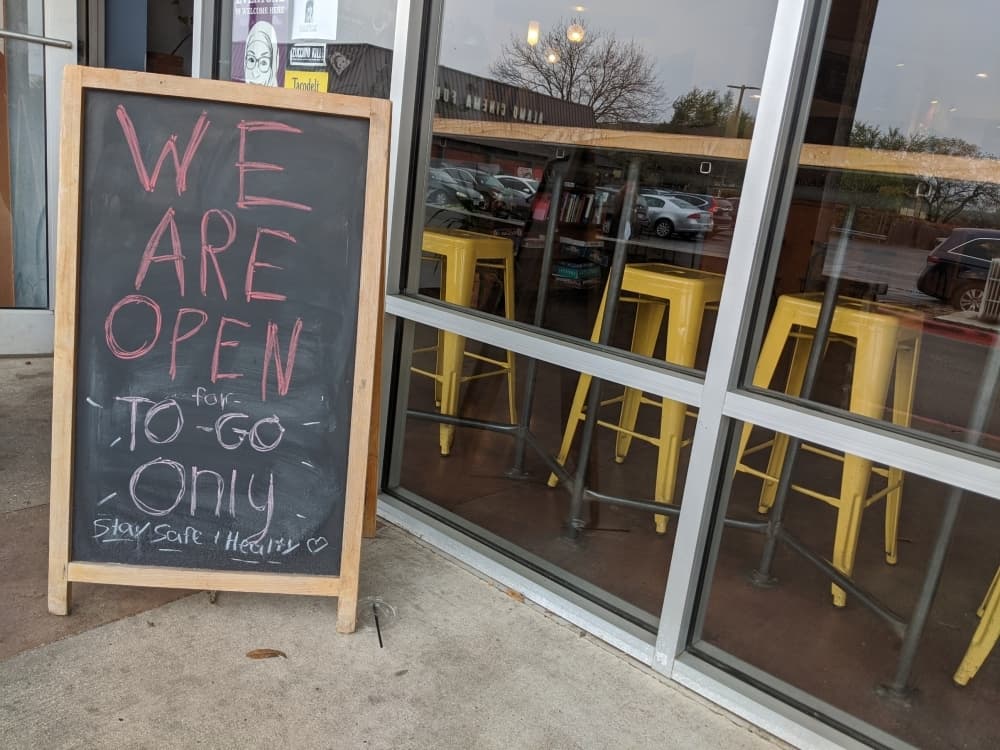 WE
ARE
OPEN
for
TO-GO
Only
Stay Safe & Healthy ♡
WELCOME HERE
Tacodeli